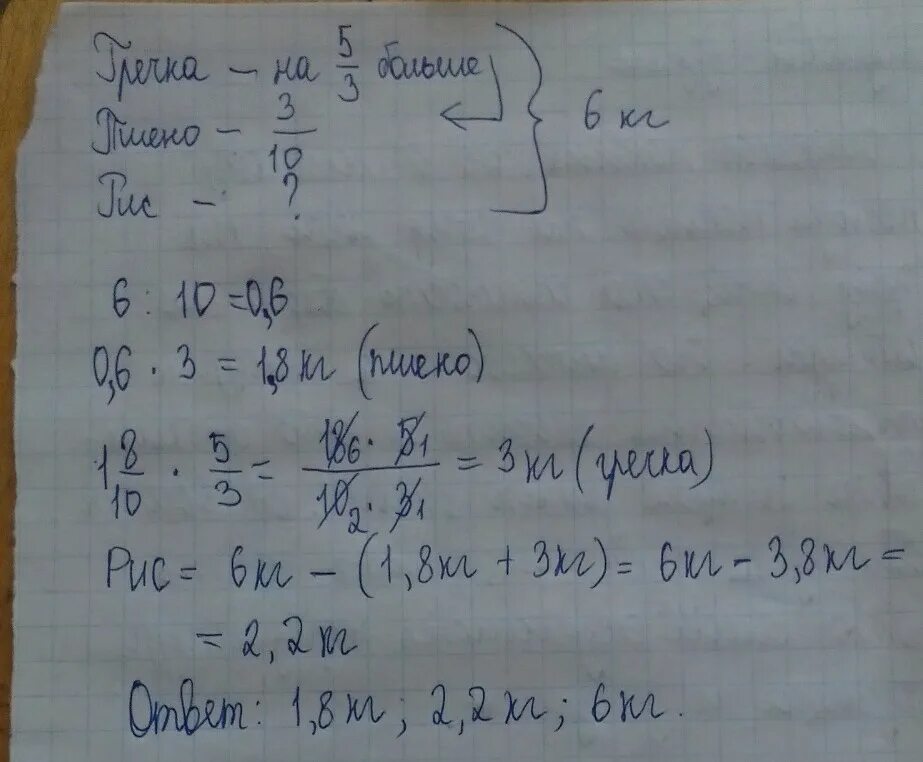 Гречка – на 5/3 больше
Пшено – 3/10
Рис – ?
6 кг
6 : 10 = 0,6
0,6 · 3 = 1,8 кг (пшено)
1 8/10 · 5/3 = 18 6 · 5 1 / 10 2 · 3 1 = 3 кг (гречка)
Рис = 6 кг – (1,8 кг + 3 кг) = 6 кг – 3,8 кг =
= 2,2 кг
Ответ: 1,8 кг; 2,2 кг; 6 кг.